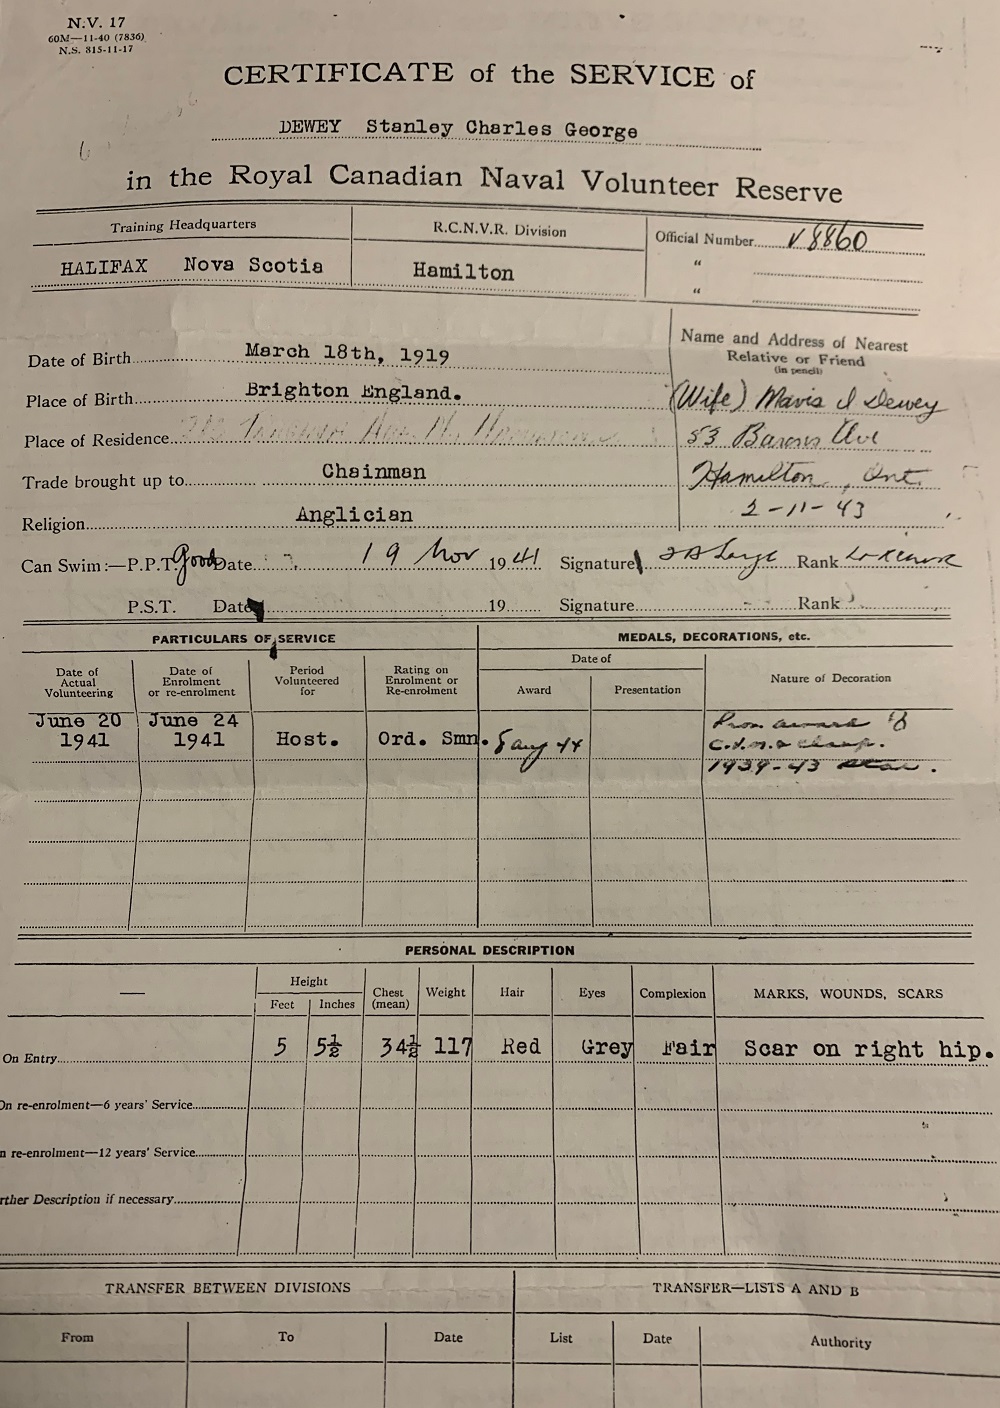 N.V. 17
60M—11-40 (7836)
N.S. 815-11-17
CERTIFICATE of the SERVICE of
DEWEY Stanley Charles George
in the Royal Canadian Naval Volunteer Reserve
Training Headquarters
HALIFAX Nova Scotia
R.C.N.V.R. Division
Hamilton
Official Number V 8860
"
"
Date of Birth March 18th, 1919
Place of Birth Brighton England.
Place of Residence
Trade brought up to Chainman
Religion Anglician
Name and Address of Nearest
Relative or Friend
(in pencil)
(Wife) Mavis I Dewey
53 Barons Ave
Hamilton, Ont.
2-11-43
Can Swim:—P.P.T. Good Date 19 Nov 1941 Signature Rank
P.S.T. Date 19 Signature Rank
PARTICULARS OF SERVICE
MEDALS, DECORATIONS, etc.
Date of Actual Volunteering
Date of Enrolment or re-enrolment
Period Volunteered for
Rating on Enrolment or Re-enrolment
Date of
Award
Presentation
Nature of Decoration
June 20 1941
June 24 1941
Host.
Ord. Smn.
5 Aug 44
Prov. award of
C.V.M. & clasp.
1939-43 star.
PERSONAL DESCRIPTION
—
Height
Feet
Inches
Chest (mean)
Weight
Hair
Eyes
Complexion
MARKS, WOUNDS, SCARS
On Entry 5 5½ 34½ 117 Red Grey Fair Scar on right hip.
On re-enrolment—6 years' Service
n re-enrolment—12 years' Service
rther Description if necessary
TRANSFER BETWEEN DIVISIONS
TRANSFER—LISTS A AND B
From
To
Date
List
Date
Authority